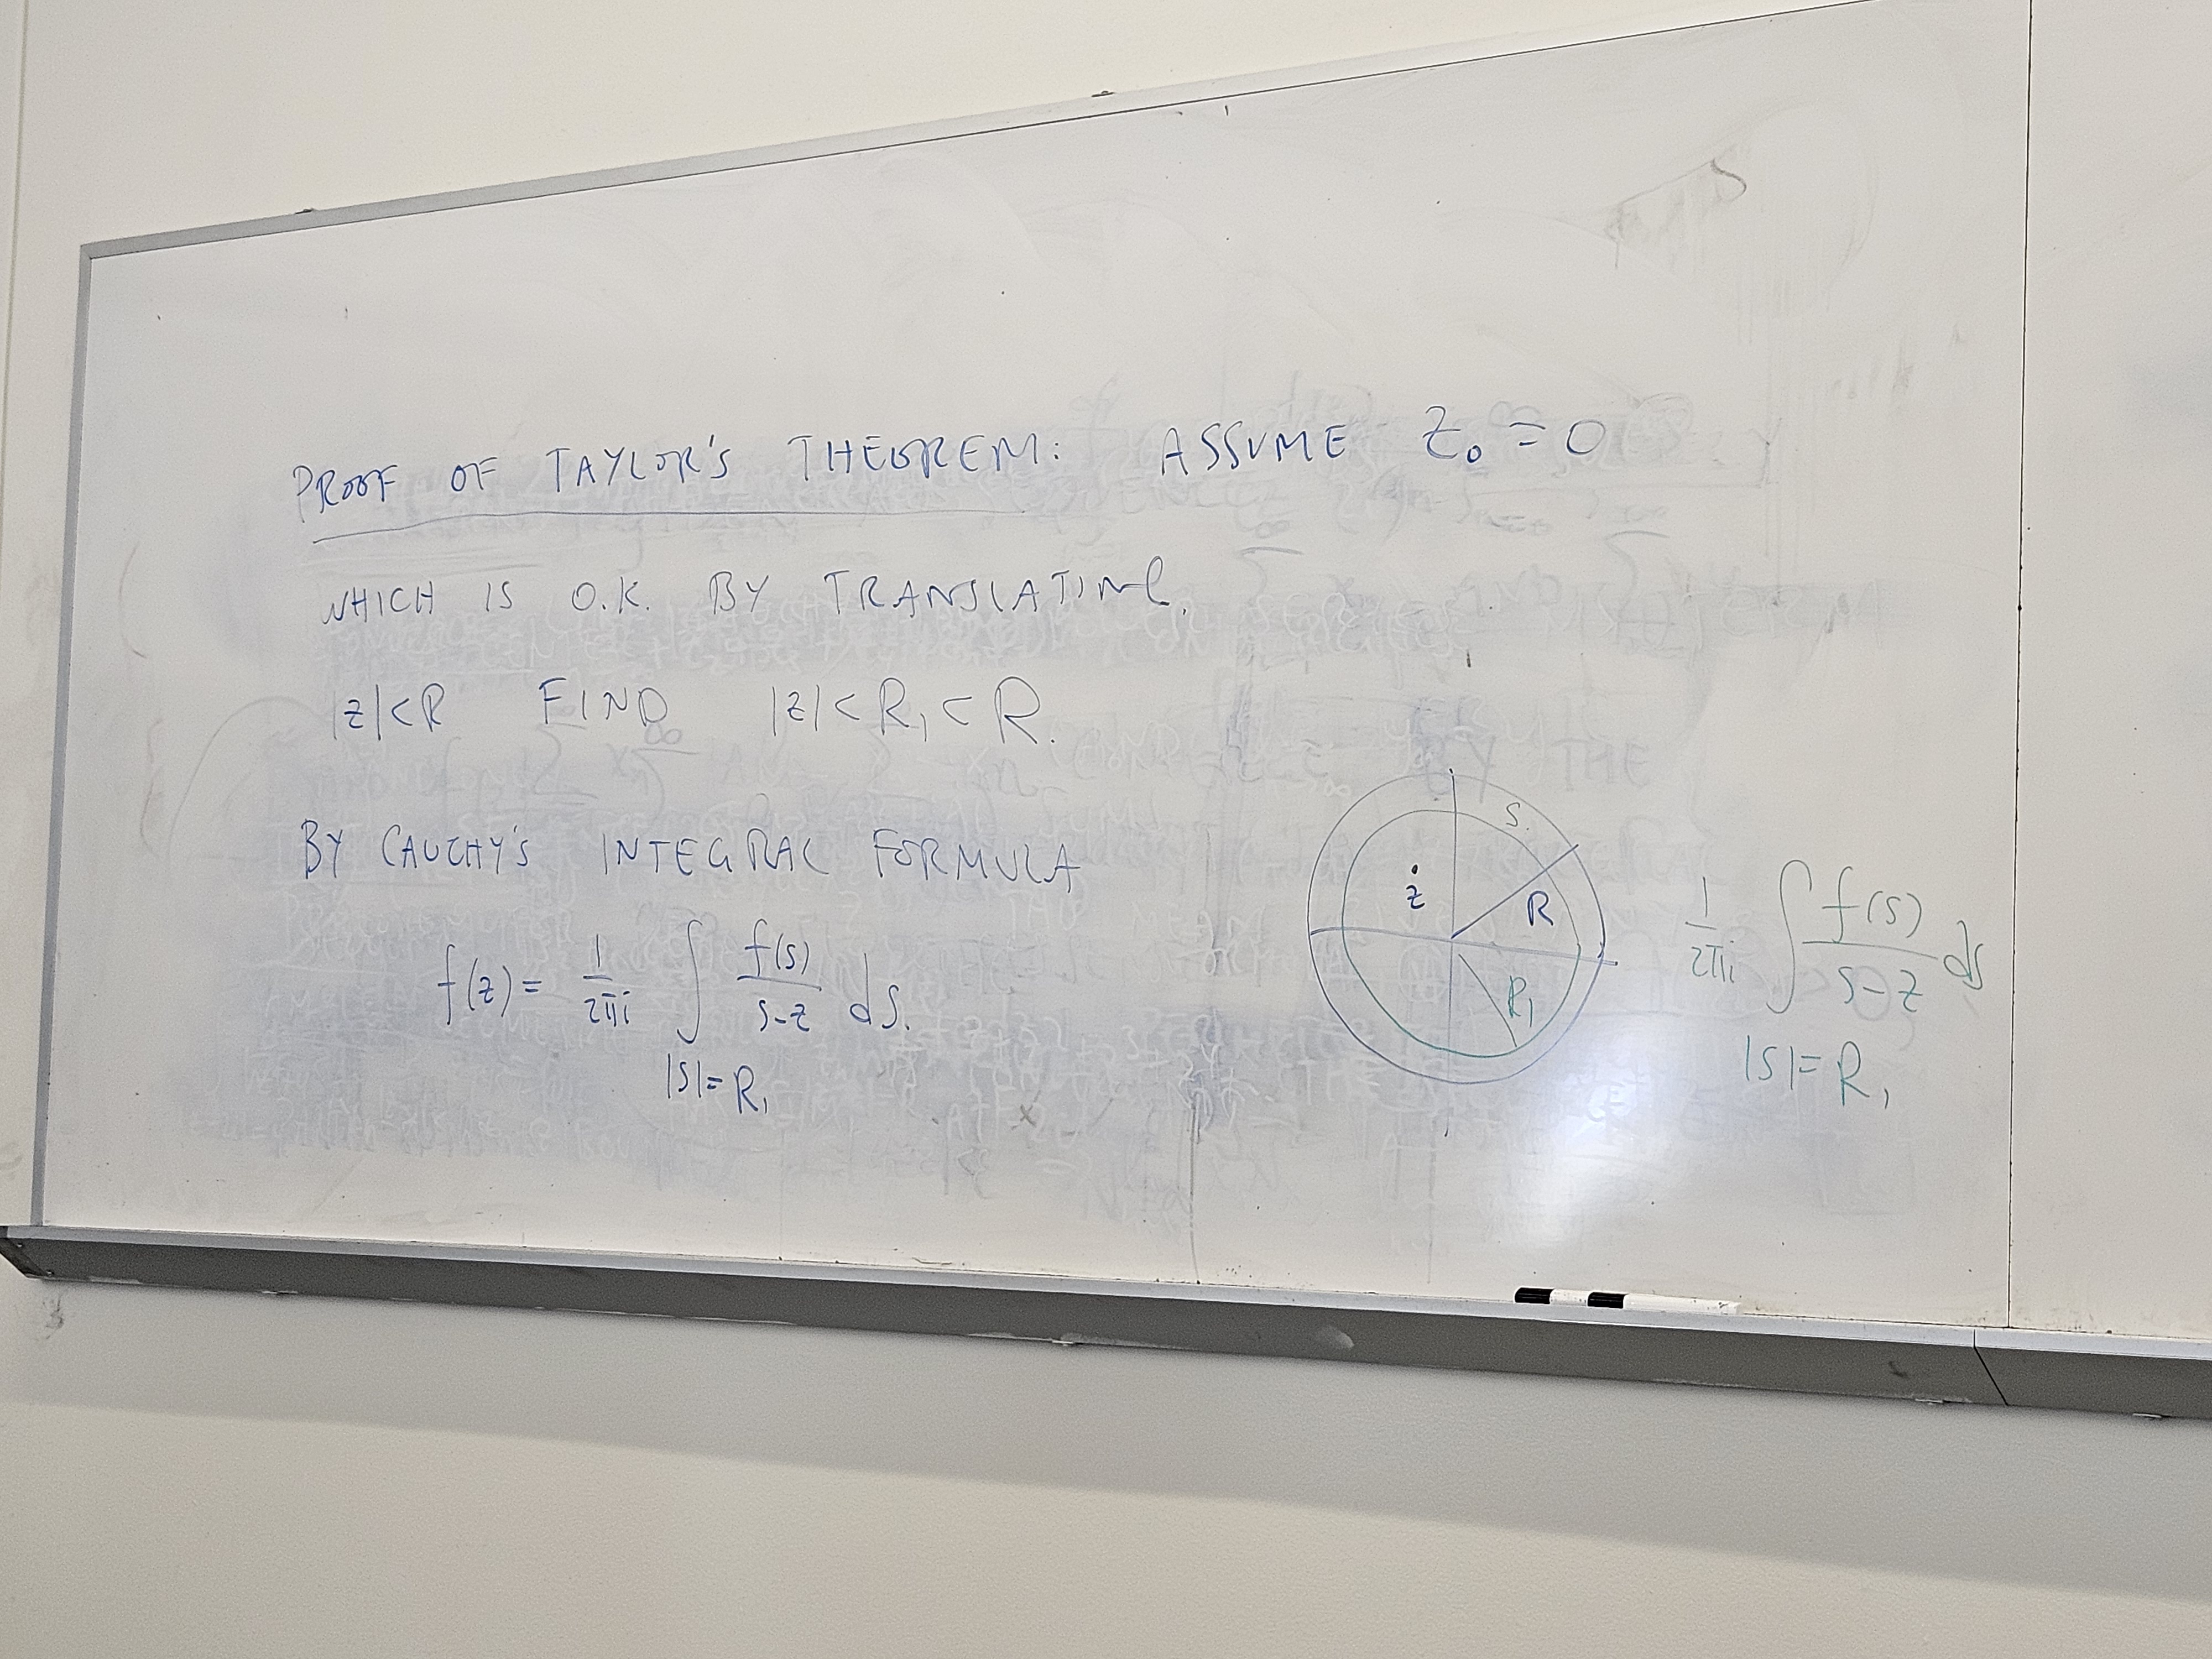 PROOF OF TAYLOR'S THEOREM: ASSUME Z₀ = 0
WHICH IS O.K. BY TRANSLATING.
|z|<R FIND |z|<R₁<R.
BY CAUCHY'S INTEGRAL FORMULA
f(z) = 1/2πi ∫ f(s)/s-z ds.
|s|=R₁
S.
z
R
R₁
1/2πi ∫ f(s)/s-z ds
|s|=R₁